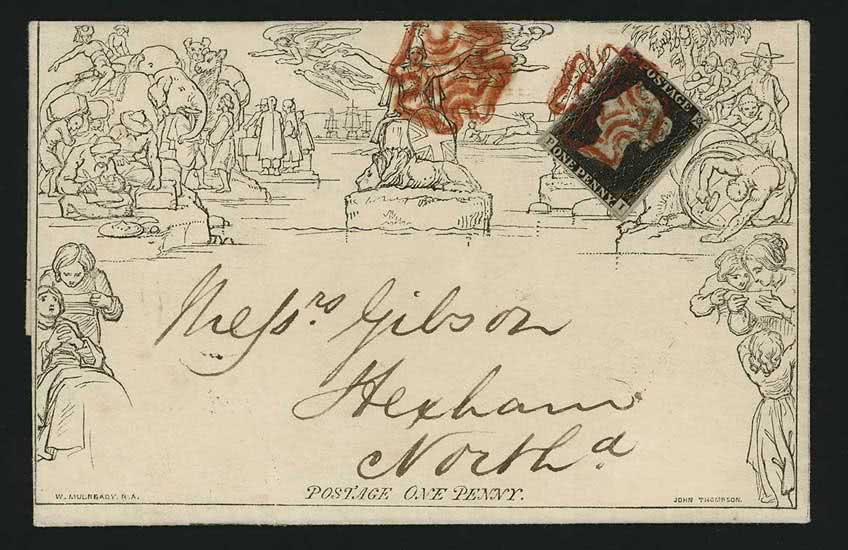 POSTAGE
PONE PENNY
Messrs Gibson
Hexham
Northd
W. MULREADY. R.A.
POSTAGE ONE PENNY.
JOHN THOMPSON.